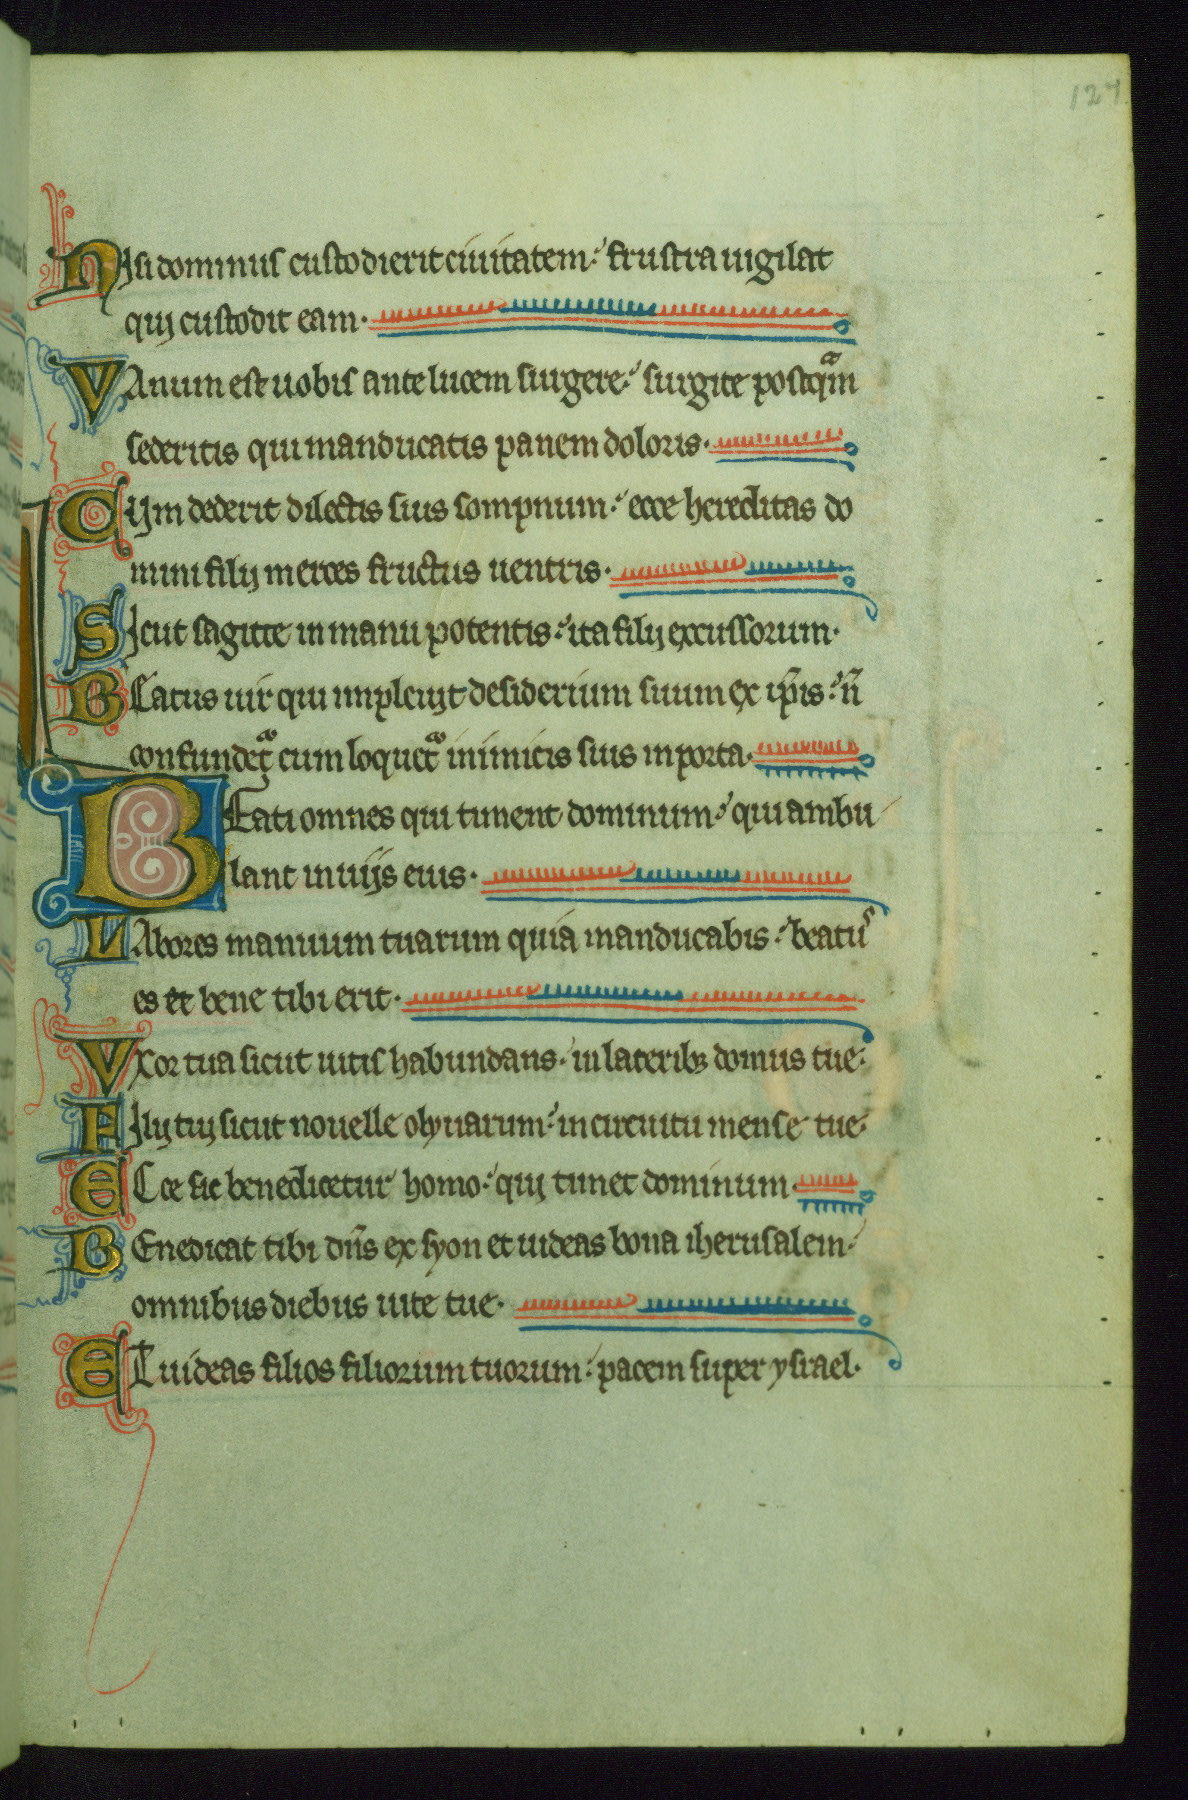 127
Nisi dominus custodierit ciuitatem: frustra uigilat
qui custodit eam.
Vanum est uobis ante lucem surgere: surgite postq̃m
sederitis qui manducatis panem doloris.
Cum dederit dilectis suis sompnum: ecce hereditas do
mini filij merces fructus uentris.
Sicut sagitte in manu potentis: ita filij excussorum.
Beatus uir qui impleuit desiderium suum ex ip̃is: ñ
confundet᷑ cum loquet᷑ inimicis suis in porta.
Beati omnes qui timent dominum: qui ambu
lant in uijs eius.
Labores manuum tuarum quia manducabis: beatuˢ
es et bene tibi erit.
Vxor tua sicut uitis habundans: in laterib; domus tue.
Filij tui sicut nouelle olyuarum: in circuitu mense tue.
Ecce sic benedicetur homo: qui timet dominum.
Benedicat tibi dñs ex syon et uideas bona iherusalem:
omnibus diebus uite tue.
Et uideas filios filiorum tuorum: pacem super ysrael.